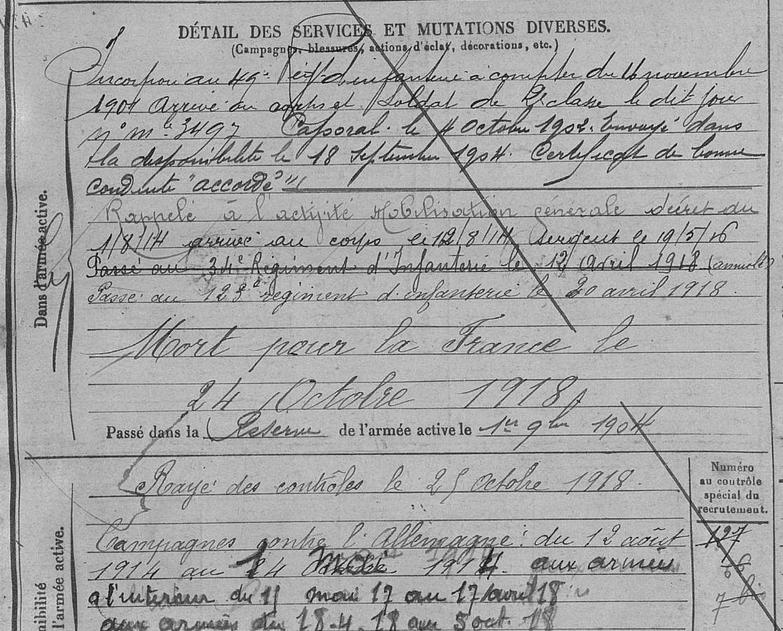 DÉTAIL DES SERVICES ET MUTATIONS DIVERSES.
(Campagnes, blessures, actions d'éclat, décorations, etc.)
Incorporé au 49e d'infanterie à compter du 16 novembre
1901 Arrivé au corps et soldat de 2e classe le dit jour
n° 3497 Caporal le 4 Octobre 1902. Envoyé dans
la disponibilité le 18 Septembre 1904. Certificat de bonne
conduite "accordé"
Rappelé à l'activité Mobilisation générale décret du
1/8/14 arrivé au corps le 12/8/14 Sergent le 19/5/16
Passé au 34e Régiment d'Infanterie le 12 avril 1918 (annulé)
Passé au 128e régiment d'infanterie le 20 avril 1918
Mort pour la France le
24 Octobre 1918
Dans l'armée active.
Passé dans la Réserve de l'armée active le 1er 9bre 1904
Rayé des contrôles le 25 Octobre 1918.
Numéro
au contrôle
spécial du
recrutement.
Campagnes contre l'Allemagne: du 12 août
1914 au aux armées
à l'intérieur du 11 mai 17 au 17 avril 18
aux armées du 18.4.18 au
127
nibilité
l'armée active.